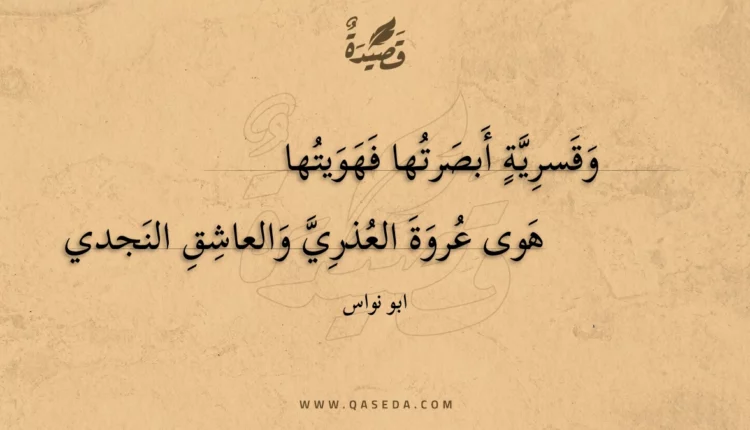 قَصِيدَةٌ
وَقَسرِيَّةٍ أَبصَرتُها فَهَوَيتُها
هَوى عُروَةَ العُذرِيَّ وَالعاشِقِ النَجدي
ابو نواس
WWW.QASEDA.COM